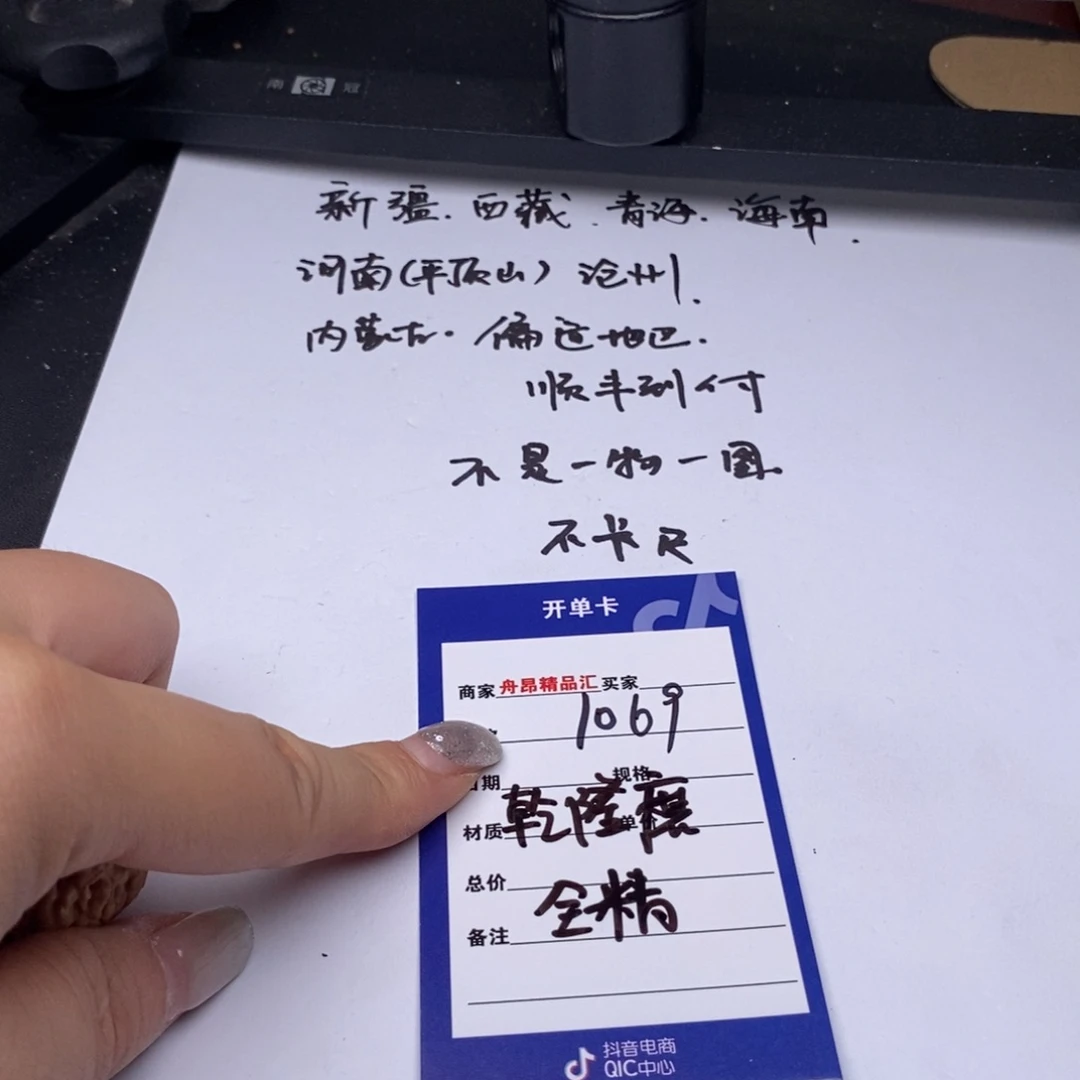 南 冠
新疆.西藏.青海.海南.
河南(平顶山) 沧州.
内蒙古.偏远地区.
顺丰到付
不是一物一图.
不卡尺
开单卡
商家 舟昂精品汇 买家
1069
日期 规格
材质 单价
乾隆
总价
全精
备注
抖音电商
QIC中心